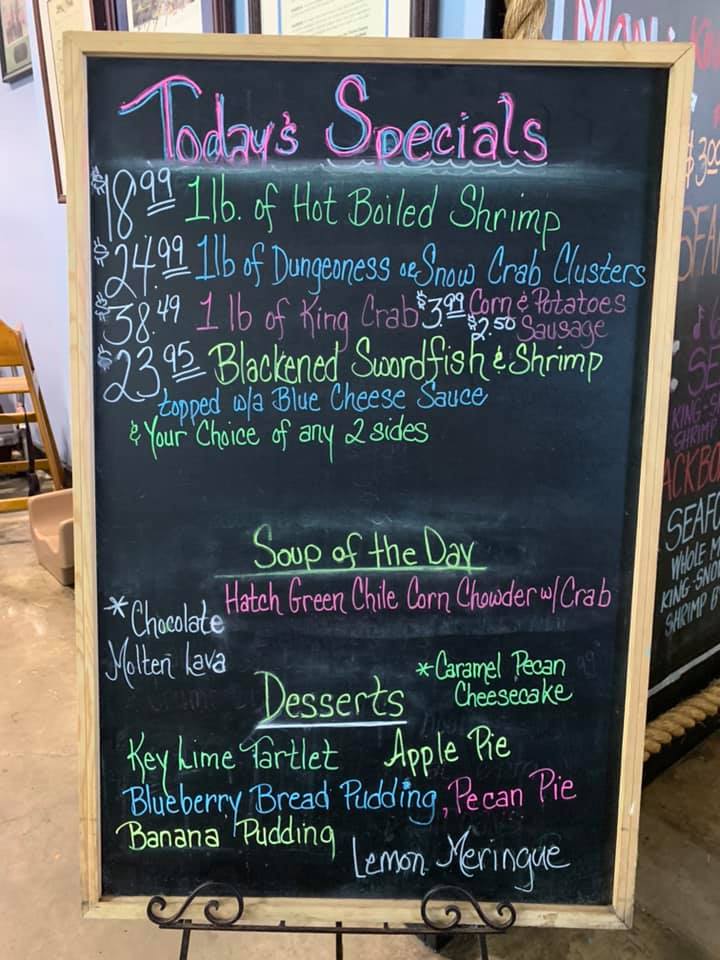 Today's Specials
$18.99 1lb. of Hot Boiled Shrimp
$24.99 1lb of Dungeoness or Snow Crab Clusters
$38.49 1 lb of King Crab $3.99 Corn & Potatoes
$2.50 Sausage
$23.95 Blackened Swordfish & Shrimp
topped w/a Blue Cheese Sauce
& Your Choice of any 2 sides
Soup of the Day
Hatch Green Chile Corn Chowder w/ Crab
*Chocolate
Molten Lava
*Caramel Pecan
Cheesecake
Desserts
Key Lime Tartlet Apple Pie
Blueberry Bread Pudding, Pecan Pie
Banana Pudding
Lemon Meringue
$3.00
SE
KING-S
SHRIMP
SEAF
WHOLE M
KING-SNO
SHRIMP